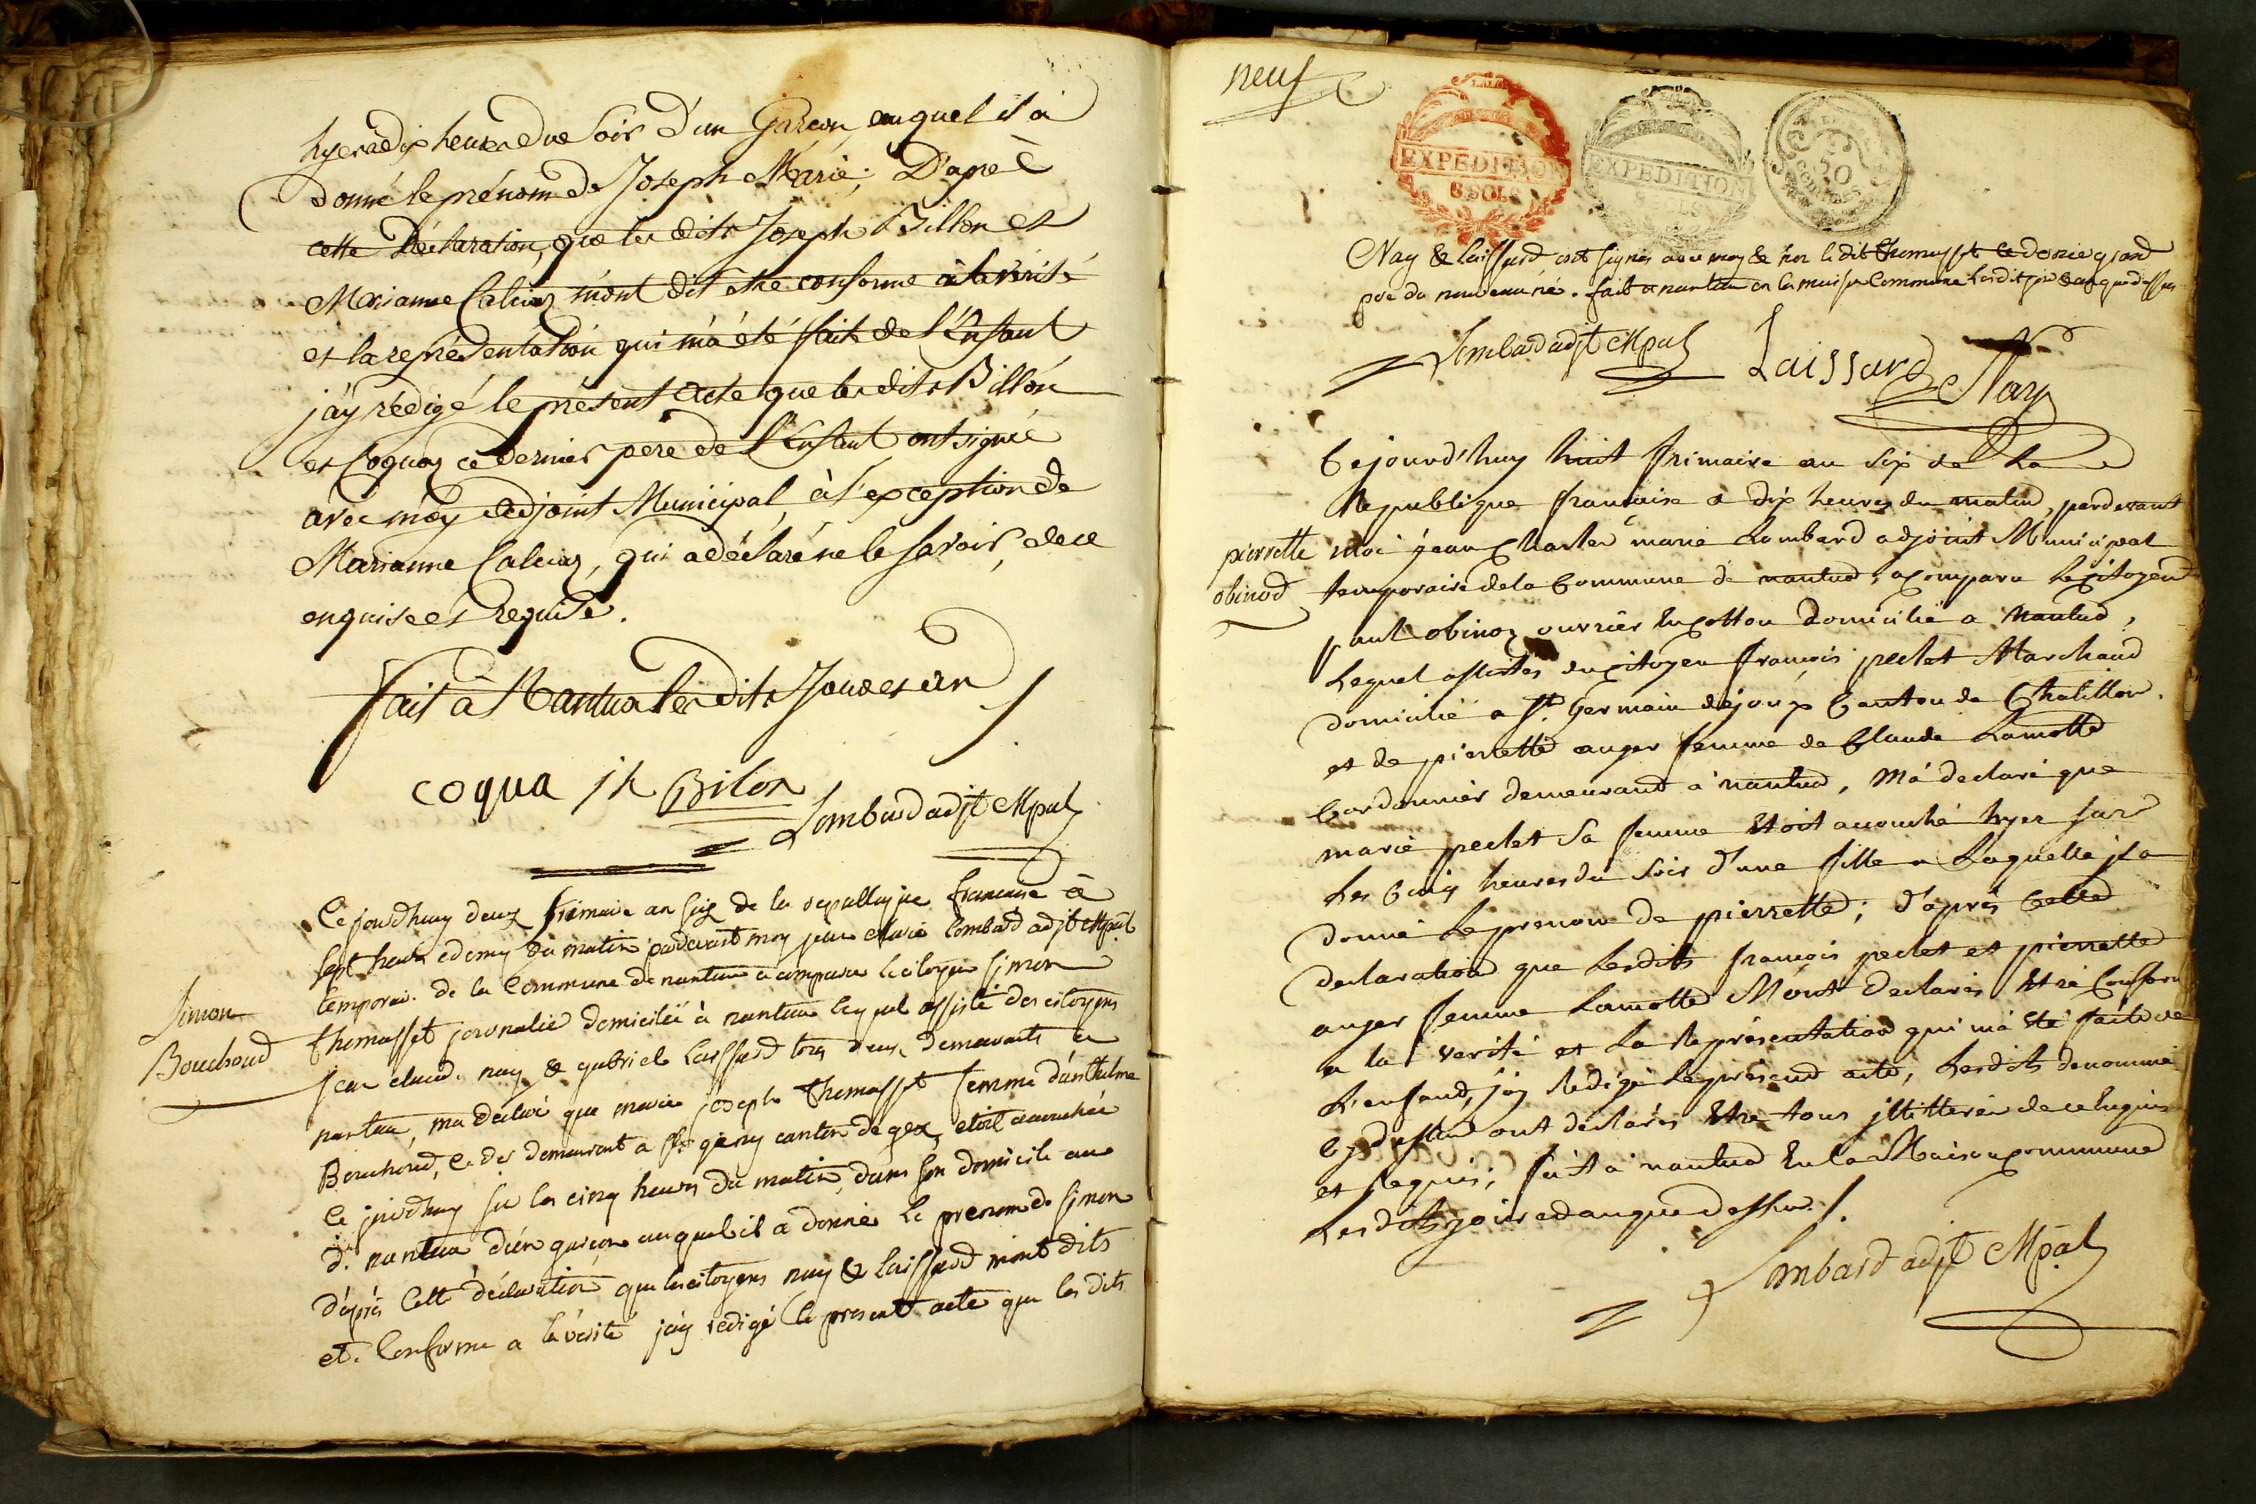 hyer a dix heures du soir d'un Garçon, auquel il à
donné le prénom de Joseph Marie; D'aprè
cette Déclaration, que les dits Joseph Billon et
Marianne Calcaz m'ont dit être conforme à la vérité
et la représentation qui m'a été faite de l'Enfant
j'ay rédigé le présent acte que les dits Billon
et Coquaz ce dernier pere de l'Enfant ont signé
avec moy adjoint Municipal, à l'exception de
Marianne Calcaz, qui a déclaré ne le savoir, de ce
enquise et requise.
fait à Nantua les dits Jour et an
coqua jh Bilon
Lombard adjt Mpal
Ce jourdhuy deux frimaire an six de la republique francaise à
sept heures e demy du matin pardevant moy jean Marie Lombard adjt Mpal
temporair. de la Commune de nantua a comparu le citoyen Simon
Simon
Bouchoud
thomasset journalié domicilié à nantua lequel assisté des citoyens
jean claud. nay & gabriel Laissard tous deux demeurants a
nantua, ma déclaré que marie joseph thomasset femme d'anthelme
Bouchoud, le der demeurant a gex canton de gex etoit acouchée
ce jourdhuy sur les cinq heures du matin, dans son domicile au
d. nantua d'un garçon auquel il a donné le prenom de Simon
d'après cette déclaration que les citoyens nay & laissard m'ont dits
et. Conforme a la vérité jay redigé le present acte que les dits
neuf
EXPEDITION
6 SOLS
EXPEDITION
LS
20
CENTIMES
Nay & laissard ont signés avec moy & non le dit thomasset ce dernier grand
pere du nouveau né. fait a nantua en la maison Commune lesdit jour & an que dessus
Lombard adjt Mpal Laissard Nay
Cejourd'huy huit frimaire an six de La
Republique francaise a dix heures du matin, pardevant
pierrette
obinod
moi jean Charles marie Lombard adjoint Municipal
temporaire de la Commune de nantua, a comparu Le citoyen
paul obinoz ouvrier En cotton domicilié a nantua,
Lequel assistés du citoyen françois peclet Marchand
domicilié a St Germain dejoux Canton de Chatillon.
et de pierrette auger femme de Claude Lamotte
Cordonnier demeurant a nantua, M'a declaré que
marie peclet sa femme Etoit acouché hyer sur
Les Cinq heures du soir d'une fille a Laquelle il a
donné Le prenom de pierrette; d'aprés Cette
declaration que Lesdits françois peclet et pierrette
auger femme Lamotte M'ont declarés Etre Conforme
a la verité et La Représentation qui m'a Eté faite de
L'enfand, j'ay Redigé Le present acte, Lesdits denommé
cy dessus ont déclarés Etre tous jllitterés de ce Enquis
et Requis; fait a nantua En la Maison commune
Les dits jour et an que dessus.
Lombard adjt Mpal